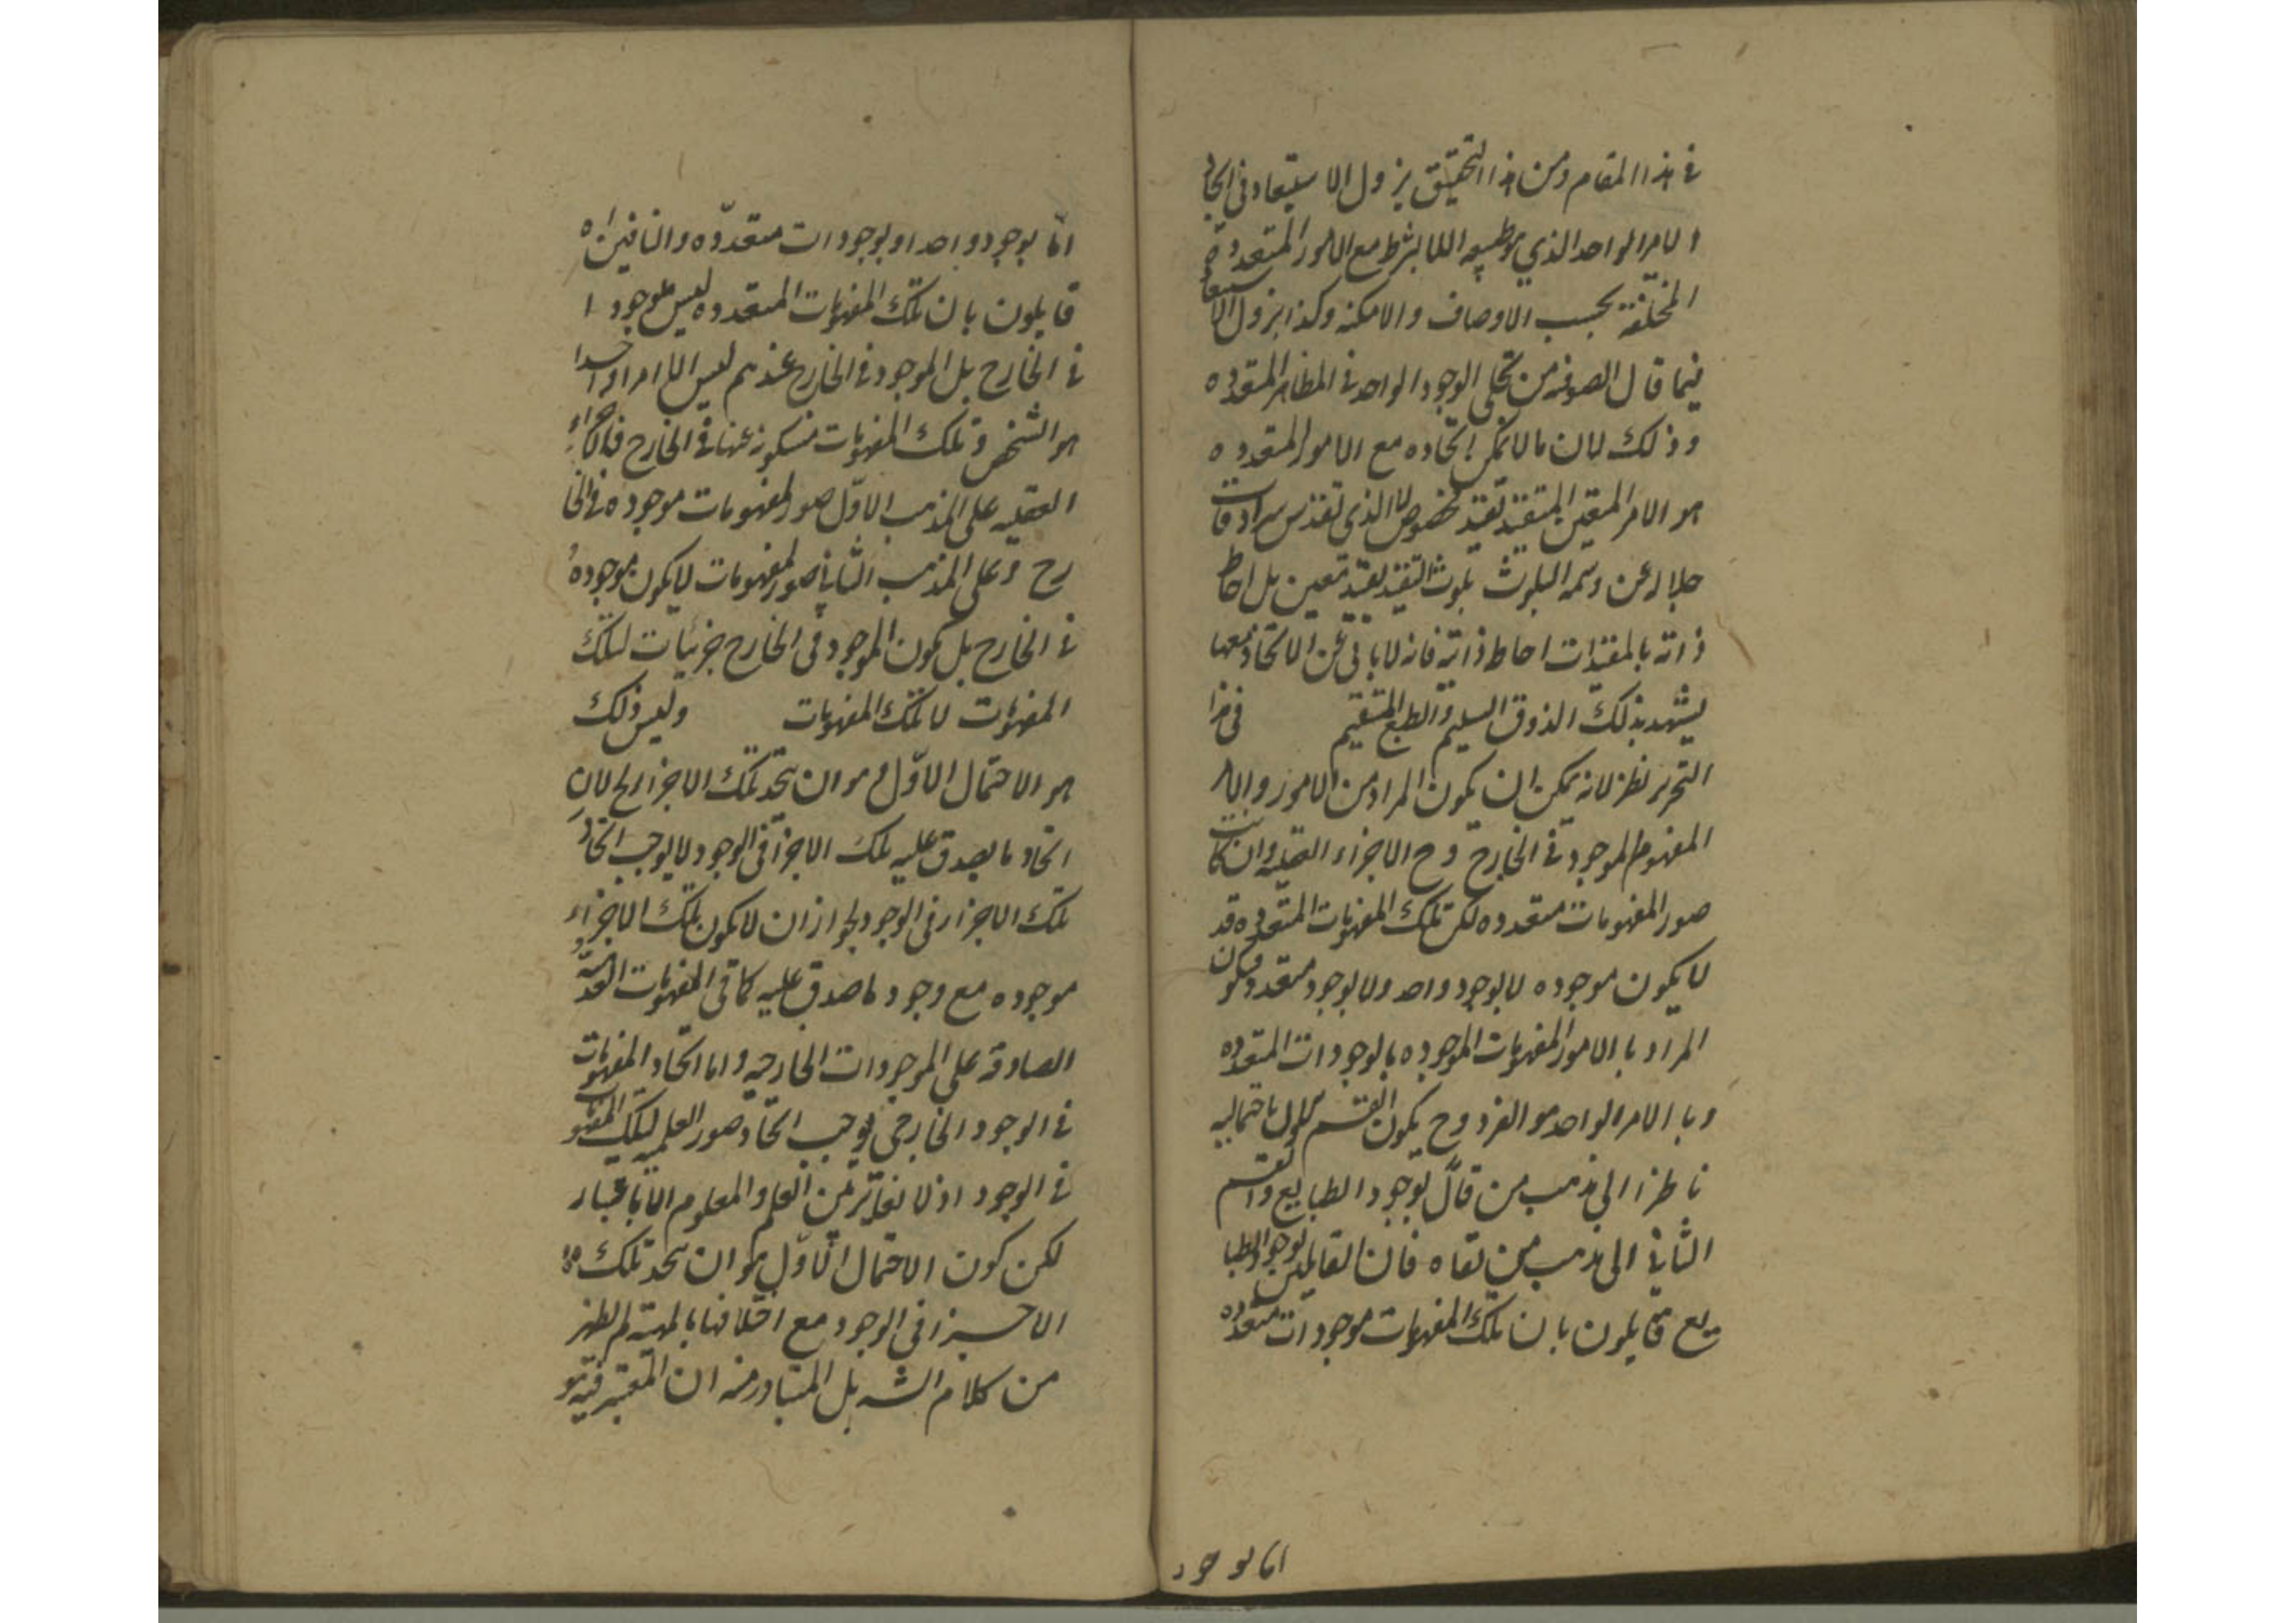 في هذا المقام ومن هذا التحقيق يزول الاستبعاد في اتحاد
الامر الواحد الذي هو طبيعه اللابشرط مع الامور المتعدده
المختلفة بحسب الاوصاف والامكنه وكذا يزول الاستبعاد
فيما قال الصوفيه من تجلى الوجود الواحد في المظاهر المتعدده
وذلك لان ما لا يمكن اتحاده مع الامور المتعدده
هو الامر المتعين المتقيد بقيد مخصوص لا الذي تقدس سرادقات
جلاله عن وسمه التلوث بلوث التقيد بقيد معين بل احاط
ذاته بالمقيدات احاط ذاته فانه لا يابى عن الاتحاد معها
يشهد بذلك الذوق السليم والطبع المستقيم في هذا
التحرير نظر لانه يمكن ان يكون المراد من الامور والامر
المفهوم الموجود في الخارج وح الاجزاء العقليه وان كانت
صور المفهومات متعدده لكن تلك المفهومات المتعدده قد
لا يكون موجوده لا بوجود واحد ولا بوجود متعدد ويكون
المراد با الامور المفهومات الموجوده بالوجودات المتعدده
وبا الامر الواحد هو الفرد وح يكون القسم الاول باحتماليه
ناظرا الى مذهب من قال بوجود الطبايع والقسم
الثاني الى مذهب من نفاه فان القايلين بوجود الطبا
يع قايلون بان تلك المفهومات موجودات متعدده
اما بوجود
اما بوجود واحد او بوجودات متعدّده والنافين له
قايلون بان تلك المفهومات المتعدده ليس موجودا
في الخارج بل الموجود في الخارج عندهم ليس الا امرا واحدا
هو الشخص وتلك المفهومات منسكوبه عنها في الخارج فالاجزاء
العقليه على المذهب الاوّل صور لمفهومات موجوده في الخا
رج وعلى المذهب الثاني صور لمفهومات لا يكون موجوده
في الخارج بل يكون الموجود في الخارج جزئيات لتلك
المفهومات لا تلك المفهومات وليس ذلك
هو الاحتمال الاوّل وهو ان يتحد تلك الاجزاء الخ لان
اتحاد ما يصدق عليه تلك الاجزاء في الوجود لا يوجب اتحاد
تلك الاجزاء في الوجود لجواز ان لا يكون تلك الاجزاء
موجوده مع وجود ما صدق عليه كما في المفهومات العدميّه
الصادقه على الموجودات الخارجيه واما اتحاد المفهومات
في الوجود الخارجي فوجب اتحاد صور العلميه لتلك المفهو
في الوجود اذ لا تغاير بين العلم والمعلوم الا بالاعتبار
لكن كون الاحتمال الاوّل هو ان يتحد تلك
الاجزاء في الوجود مع اختلافها بالمهية لم يظهر
من كلام الشه بل المتبادر منه ان المعتبر فيه هو